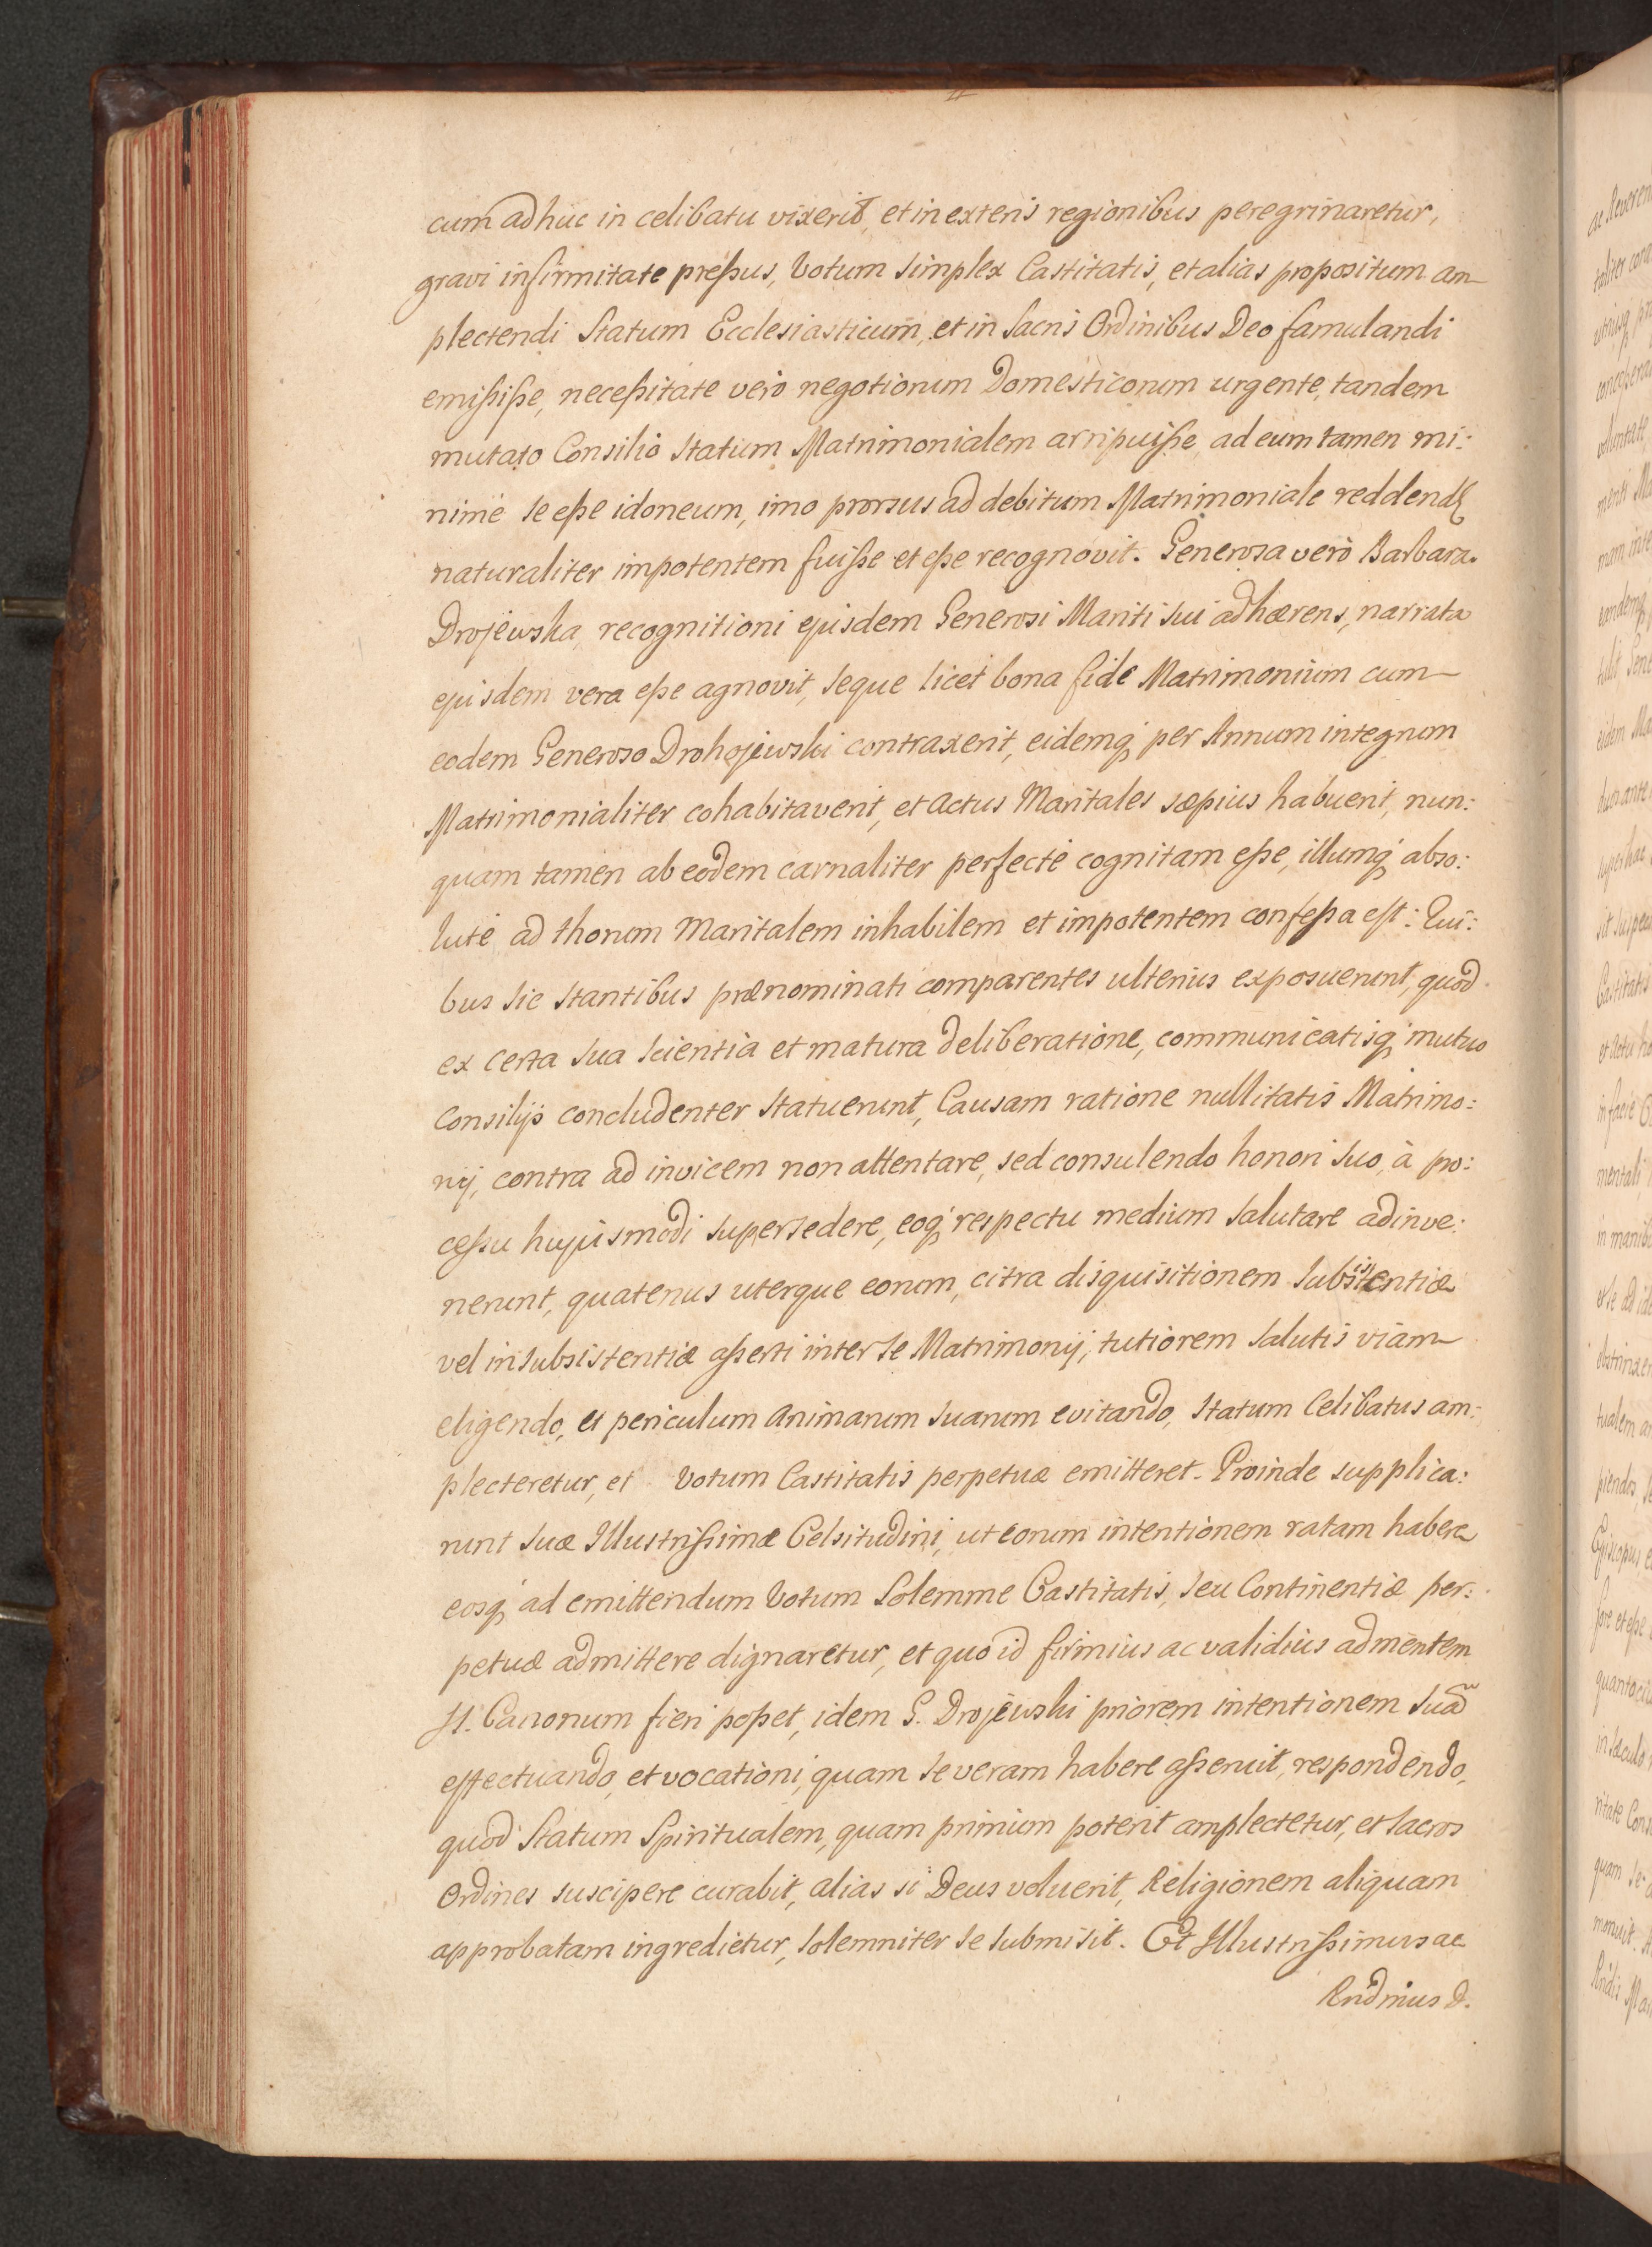 cum adhuc in celibatu vixerit, et in exteris regionibus peregrinaretur,
gravi infirmitate preßus, Votum simplex Castitatis, et alias propositum am
plectendi Statum Ecclesiasticum, et in Sacris Ordinibus Deo famulandi
emißiße, neceßitate verò negotiorum Domesticorum urgente, tandem
mutato Consilio Statum Matrimonialem arripuiße, ad eum tamen mi:
nimè se eße idoneum, imo prorsus ad debitum Matrimoniale reddend
naturaliter impotentem fuiße et eße recognovit. Generosa verò Barbara
Drojewska, recognitioni ejusdem Generosi Mariti sui adhærens, narrata
ejusdem vera eße agnovit, seque licet bona fide Matrimonium cum
eodem Generoso Drohojewski contraxerit, eidemq́ per Annum integrum
Matrimonialiter cohabitaverit, et Actus Maritales sæpius habuerit, nun:
quam tamen ab eodem carnaliter perfectè cognitam eße, illumq́ abso:
lutè ad thorum Maritalem inhabilem et impotentem confeßa est: Qui:
bus sic stantibus prænominati comparentes ulterius exposuerunt, quod
ex certa sua scientia et matura deliberatione, communicatisq́ mutuo
Consilijs concludenter statuerunt, Causam ratione nullitatis Matrimo:
nij, contra ad invicem non attentare, sed consulendo honori suo, à pro:
ceßu hujusmodi supersedere, eoq́ respectu medium salutare adinve:
nerunt, quatenus uterque eorum, citra disquisitionem subsistentiæ
vel insubsistentiæ aßerti inter se Matrimonij, tutiorem salutis viam
eligendo, et periculum Animarum suarum evitando, statum Celibatus am:
plecteretur, et Votum Castitatis perpetuæ emitteret. Proinde supplica:
runt Suæ Illustrißimæ Celsitudini, ut eorum intentionem ratam habere
eosq́ ad emittendum Votum Solemme Castitatis, seu Continentiæ per:
petuæ admittere dignaretur, et quo id firmius ac validius ad mentem
SS. Canonum fieri poßet, idem G. Drojewski priorem intentionem suã
effectuando, et vocationi, quam se veram habere aßeruit, respondendo,
quod Statum Spiritualem, quam primum poterit amplectetur, et sacros
Ordines suscipere curabit, alias si Deus voluerit, Religionem aliquam
approbatam ingredietur, solemniter se submisit. Et Illustrißimus ac
Rndmus D.